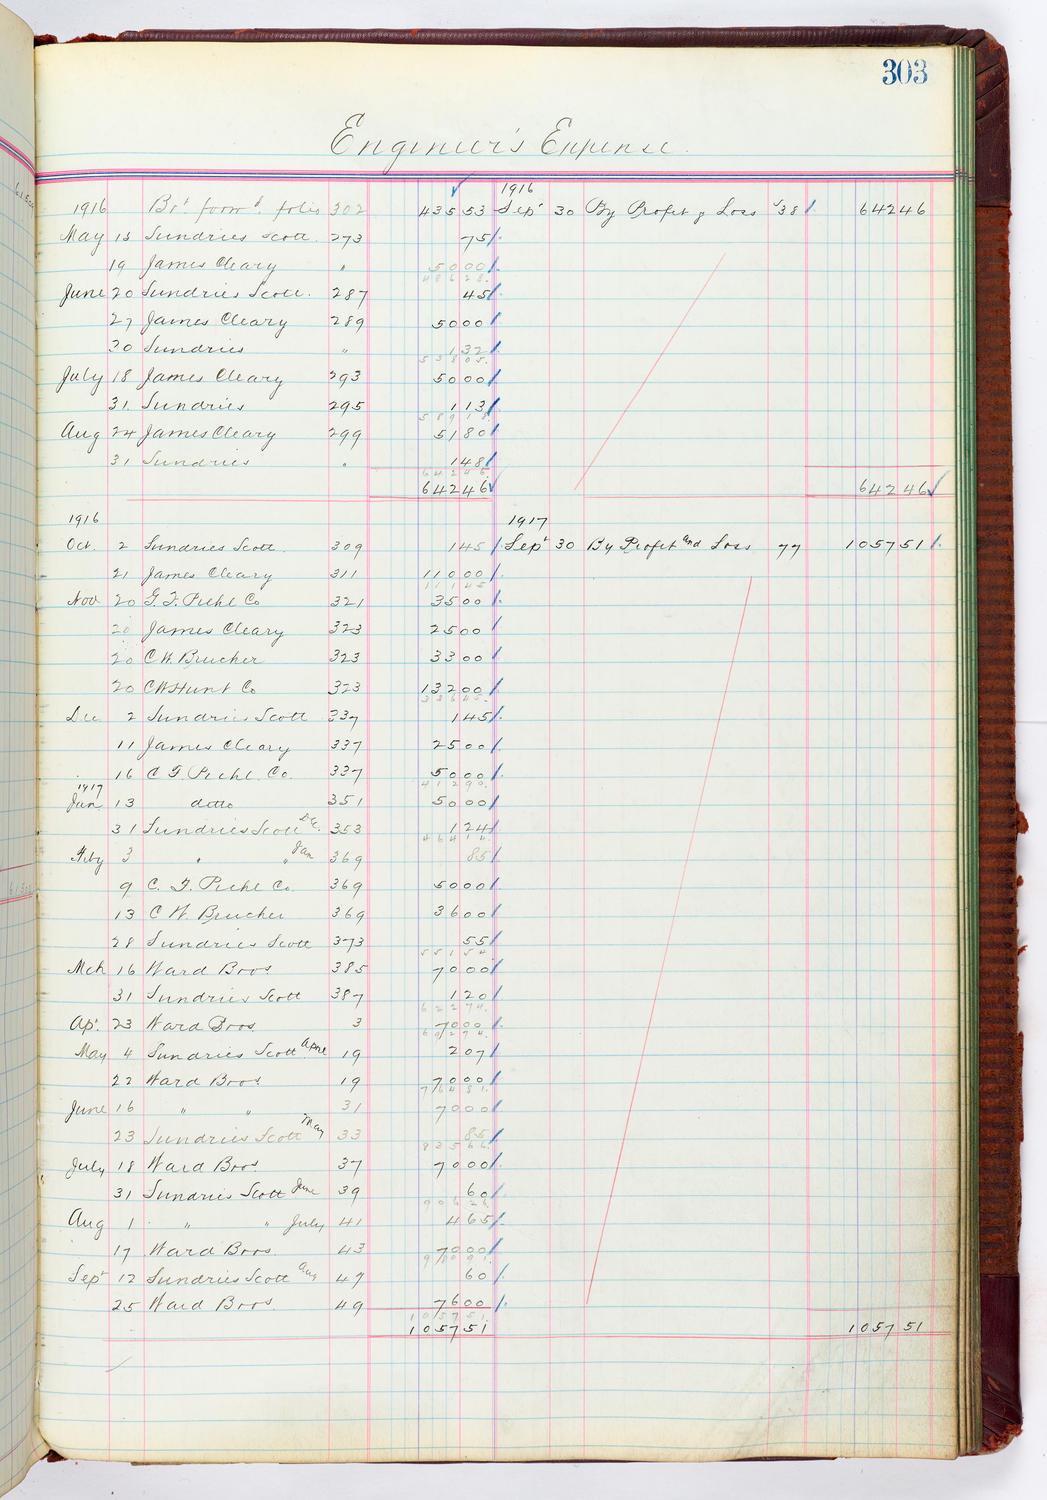 303
Engineer's Expense
1916
1916 Bt. forwd. folio 302 435 53 Sept 30 By Profit & Loss 38 642 46
May 13 Sundries Scott 273 75
19 James Cleary " 50 00
486 28
June 20 Sundries Scott 287 45
27 James Cleary 289 50 00
30 Sundries " 1 32
538 05
July 18 James Cleary 293 50 00
31 Sundries 295 1 13
589 18
Aug 24 James Cleary 299 51 80
31 Sundries " 1 48
642 46
642 46 642 46
1916 1917
Oct. 2 Sundries Scott 309 1 45 Sept 30 By Profit and Loss 77 1057 51
21 James Cleary 311 110 00
111 45
Nov 20 G. F. Piehl Co 321 35 00
20 James Cleary 323 25 00
20 C W. Brucher 323 33 00
20 C W Hunt Co 323 132 00
336 45
Dec 2 Sundries Scott 337 1 45
11 James Cleary 337 25 00
16 C F. Piehl Co. 337 50 00
412 90
1917
Jan 13 ditto 351 50 00
31 Sundries Scott Dec. 353 1 24
464 14
Feby 3 " " Jan 369 85
9 C. F. Piehl Co. 369 50 00
13 C W. Brucher 369 36 00
28 Sundries Scott 373 55
551 54
Mch 16 Ward Bros 385 70 00
31 Sundries Scott 387 1 20
622 74
Apl. 23 Ward Bros 3 70 00
692 74
May 4 Sundries Scott April 19 2 07
22 Ward Bros 19 70 00
764 81
June 16 " " 31 70 00
23 Sundries Scott May 33 85
835 66
July 18 Ward Bros 37 70 00
31 Sundries Scott June 39 60
906 26
Aug 1 " " July 41 4 65
17 Ward Bros. 43 70 00
980 91
Sept 12 Sundries Scott Aug 47 60
25 Ward Bros 49 76 00
1057 51
1057 51 1057 51